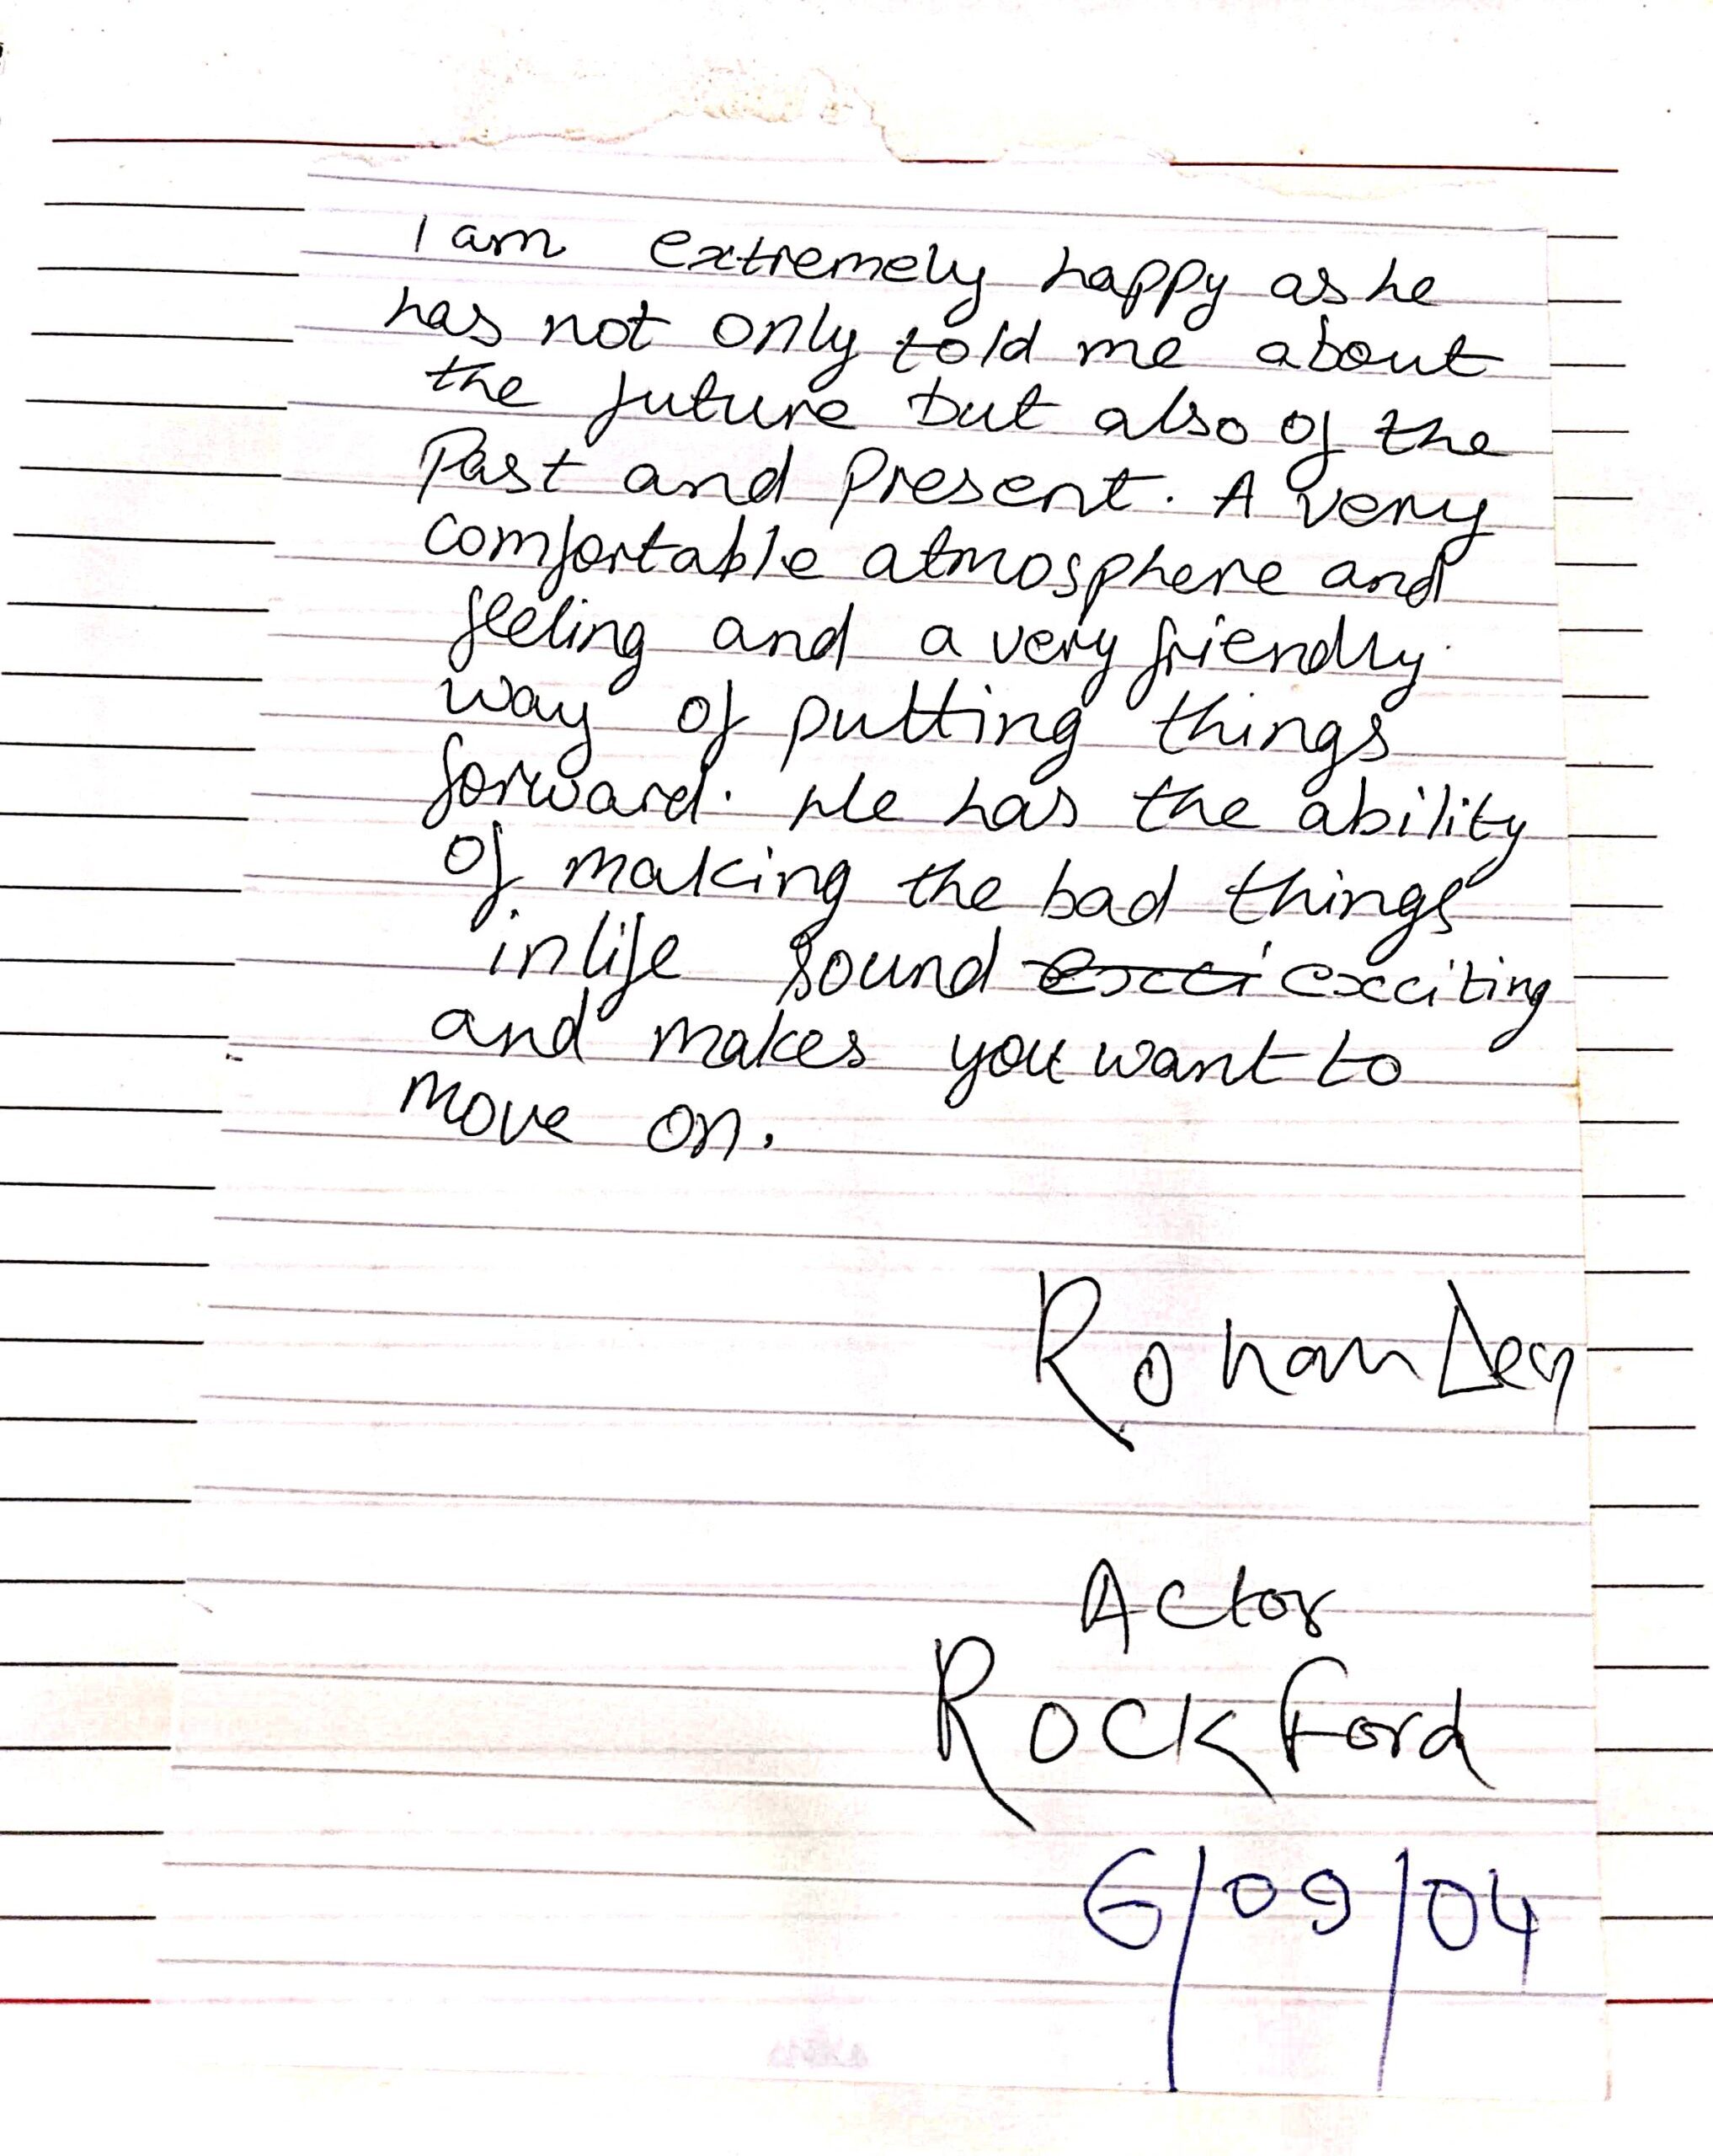 I am extremely happy as he
has not only told me about
the future but also of the
Past and present. A very
comfortable atmosphere and
feeling and a very friendly
way of putting things
forward. He has the ability
of making the bad things
in life sound exci exciting
and makes you want to
move on.
Rohan Dey
Actor
Rockford
6/09/04